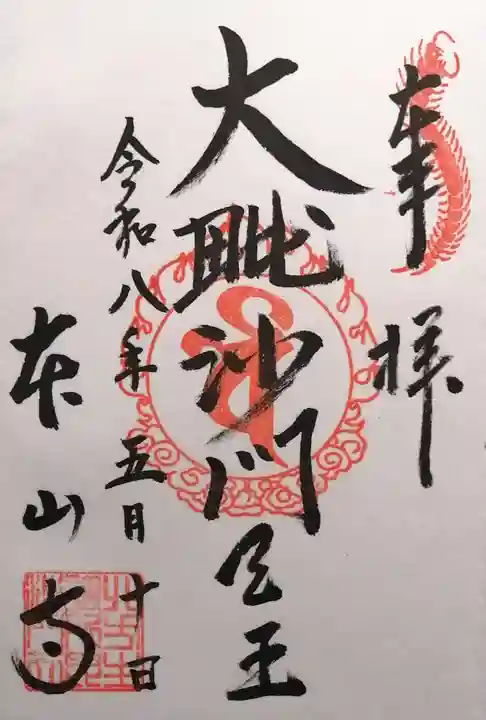 奉拝
大毗沙門天王
令和八年五月十日
本山寺